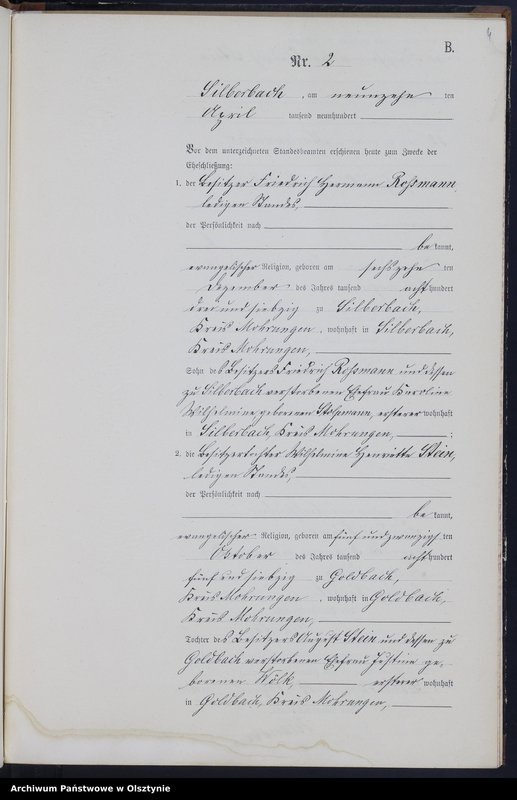 4
B.
Nr. 2
Silberbach, am neunzehn ten
April tausend neunhundert
Vor dem unterzeichneten Standesbeamten erschienen heute zum Zwecke der
Eheschließung:
1. der Besitzer Friedrich Hermann Roßmann,
ledigen Standes,
der Persönlichkeit nach
be kannt,
evangelischer Religion, geboren am sechszehn ten
Dezember des Jahres tausend acht hundert
drei und siebzig zu Silberbach,
Kreis Mohrungen, wohnhaft in Silberbach,
Kreis Mohrungen,
Sohn des Besitzers Friedrich Roßmann und dessen
zu Silberbach verstorbenen Ehefrau Karoline
Wilhelmine geborenen, ersterer wohnhaft
in Silberbach, Kreis Mohrungen, ;
2. die Besitzertochter Wilhelmine Henriette Stein,
ledigen Standes,
der Persönlichkeit nach
be kannt,
evangelischer Religion, geboren am fünf und zwanzigs ten
Oktober des Jahres tausend acht hundert
fünf und siebzig zu Goldbach,
Kreis Mohrungen, wohnhaft in Goldbach,
Kreis Mohrungen,
Tochter des Besitzers August Stein und dessen zu
Goldbach verstorbenen Ehefrau Justine ge-
borenen Wölk ersterer wohnhaft
in Goldbach, Kreis Mohrungen,
Archiwum Państwowe w Olsztynie